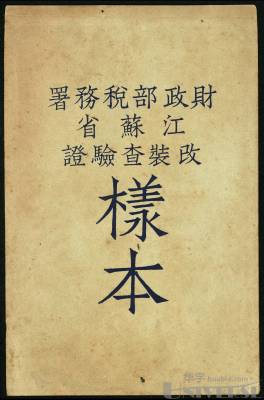 財政部稅務署
江蘇省
改裝查驗證
樣本
華宇
UNIVERSE